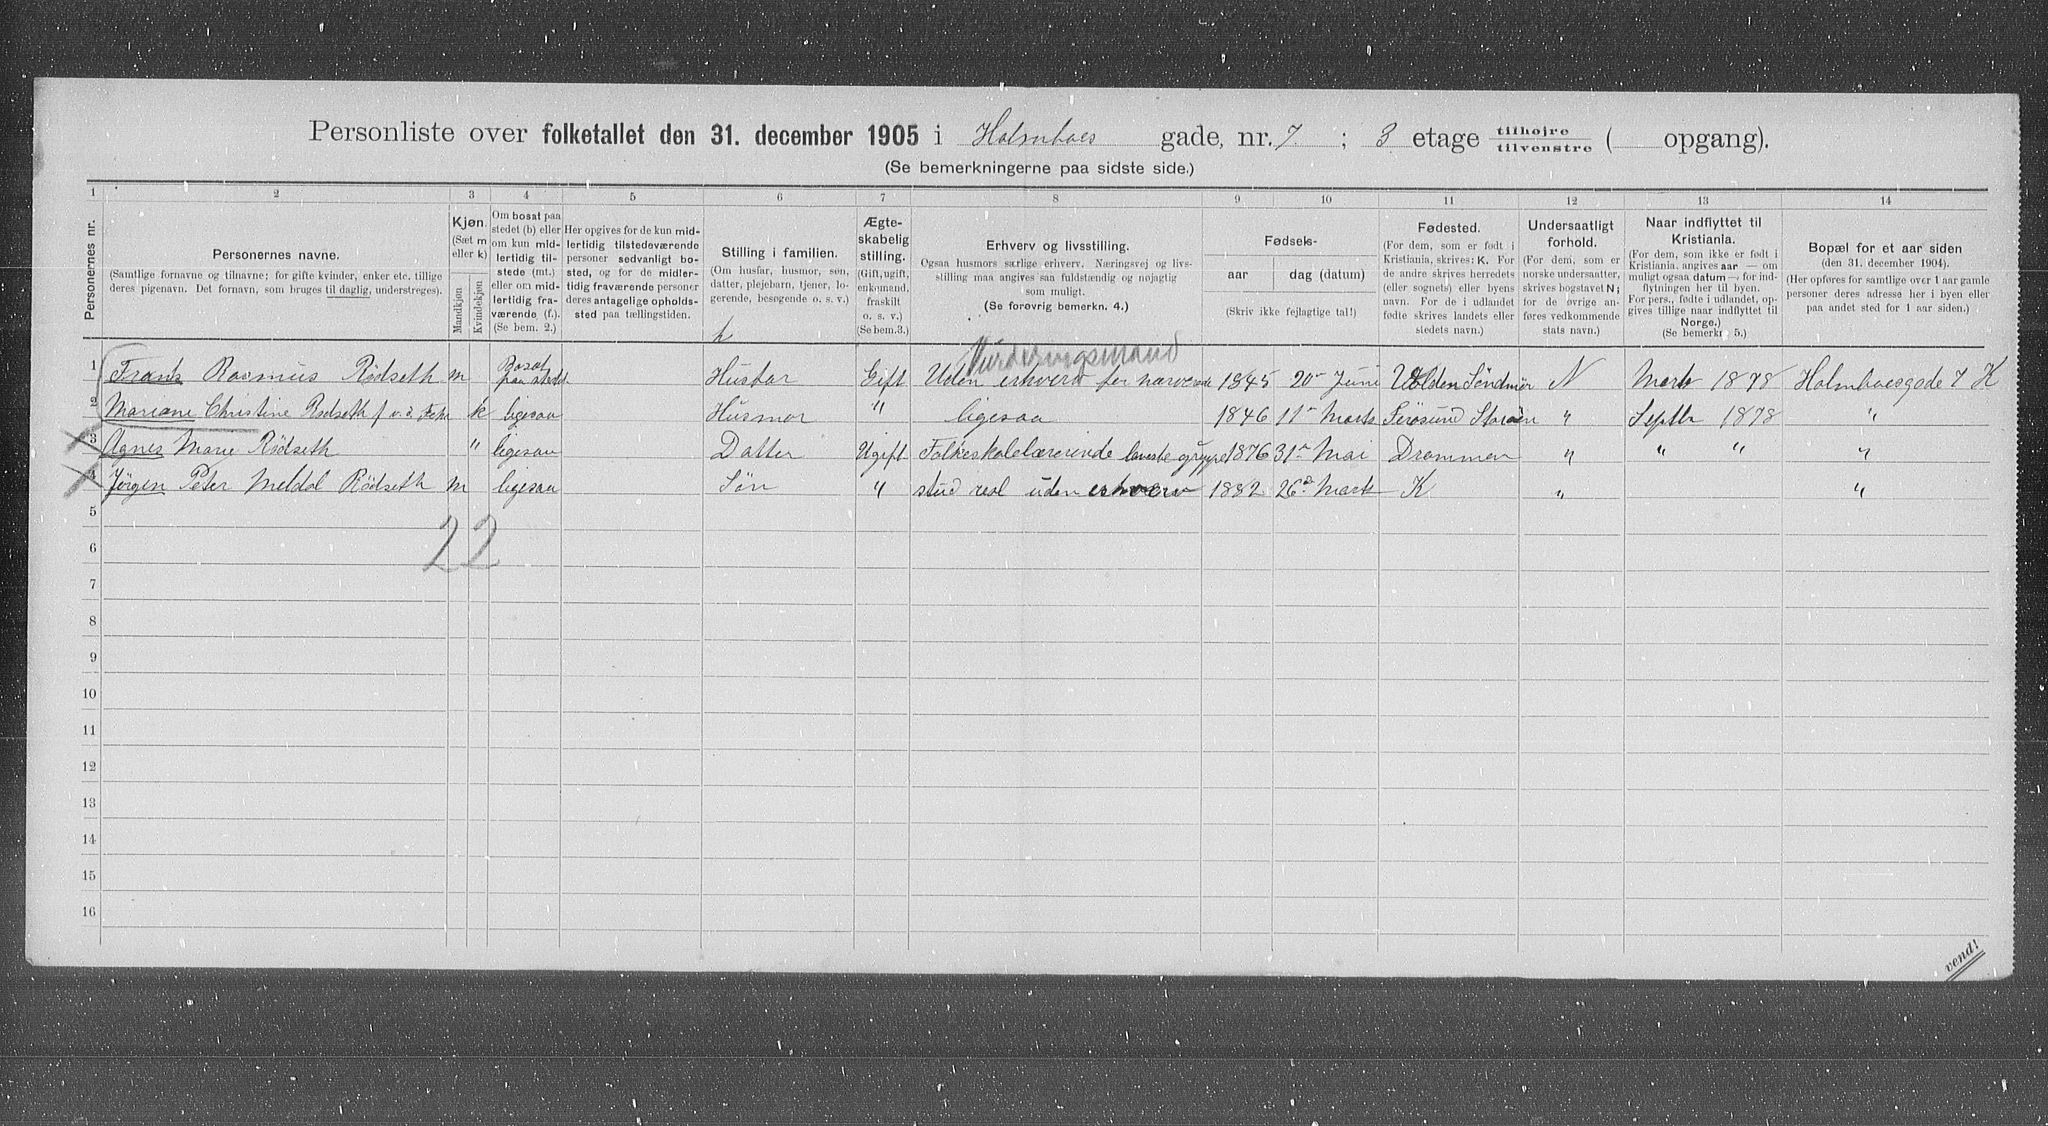 Personliste over folketallet den 31. december 1905 i Holmboes gade, nr. 7 ; 3 etage tilhøjre tilvenstre ( opgang).
(Se bemerkningerne paa sidste side.)
1 2 3 4 5 6 7 8 9 10 11 12 13 14
Personernes nr.
Personernes navne.
(Samtlige fornavne og tilnavne; for gifte kvinder, enker etc. tillige
deres pigenavn. Det fornavn, som bruges til daglig, understreges).
Kjøn.
(Sæt m
eller k)
Mandkjøn
Kvindekjøn
Om bosat paa
stedet (b) eller
om kun mid-
lertidig til-
stede (mt.)
eller om mid-
lertidig fra-
værende (f.).
(Se bem. 2.)
Her opgives for de kun mid-
lertidig tilstedeværende
personer sedvanlig bo-
sted, og for de midler-
tidig fraværende personer
deres antagelige opholds-
sted paa tællingstiden.
Stilling i familien.
(Om husfar, husmor, søn,
datter, plejebarn, tjener, lo-
gerende, besøgende o. s. v.)
h
Ægte-
skabelig
stilling.
(Gift, ugift,
enkemand,
fraskilt
o. s. v.)
(Se bem. 3.)
Erhverv og livsstilling.
Ogsaa husmors særlige erhverv. Næringsvej og livs-
stilling maa angives saa fuldstændig og nøjagtig
som muligt.
(Se forøvrig bemerkn. 4.)
Fødsels-
aar dag (datum)
(Skriv ikke fejlagtige tal!)
Fødested.
(For dem, som er født i
Kristiania, skrives: K. For
de andre skrives herredets
(eller sognets) eller byens
navn. For de i udlandet
fødte skrives landets eller
stedets navn.)
Undersaatligt
forhold.
(For dem, som er
norske undersaatter,
skrives bogstavet N;
for de øvrige an-
føres vedkommende
stats navn.)
Naar indflyttet til
Kristiania.
(For dem, som ikke er født i
Kristiania, angives aar — om
muligt ogsaa datum — for ind-
flytningen her til byen.
For pers., fødte i udlandet, op-
gives tillige naar indflyttet til
Norge.)
(Se bemerkn. 5.)
Bopæl for et aar siden
(den 31. december 1904).
(Her opføres for samtlige over 1 aar gamle
personer deres adresse her i byen eller
paa andet sted for 1 aar siden.)
Vurderingsmand
1 Frants Rasmus Rødseth m Bosat paa stedet Husfar Gift Uden erhverv for nærværende 1845 20 Juni Volden Søndmør N Marts 1878 Holmboesgade 7 K
2 Mariane Christine Rødseth f. v. d. Fehr k ligesaa Husmor " ligesaa 1846 11 Marts " Septbr 1878 "
3 Agnes Marie Rødseth " ligesaa Datter Ugift Folkeskolelærerinde laveste gruppe 1876 31 Mai Drammen " " " "
4 Jørgen Peter Meldal Rødseth m ligesaa Søn " stud real uden erhverv 1882 26 Marts K " "
22
5
6
7
8
9
10
11
12
13
14
15
16
vend!